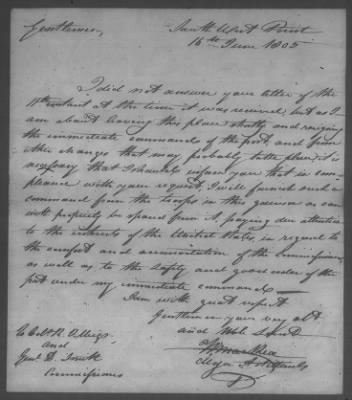 Gentlemen, South West Point
16th June 1805
I did not answer your letter of the
11th instant at the time it was received, but as I
am about leaving this place shortly and resigning
the immediate command of the post, and from
other changes that may probably take place, it is
necessary that I should inform you that in com-
pliance with your request, I will furnish such a
command from the troops in this garrison as can
with propriety be spared from it, paying due attention
to the interests of the United States in regard to
the comfort and accommodation of the Commissioners
as well as to the safety and good order of the
post under my immediate command
I am with great respect
Gentlemen your very obt
and Hbl. Servt
Majr
To Colo R. Meigs
and
Genl D. Smith
Commissioners